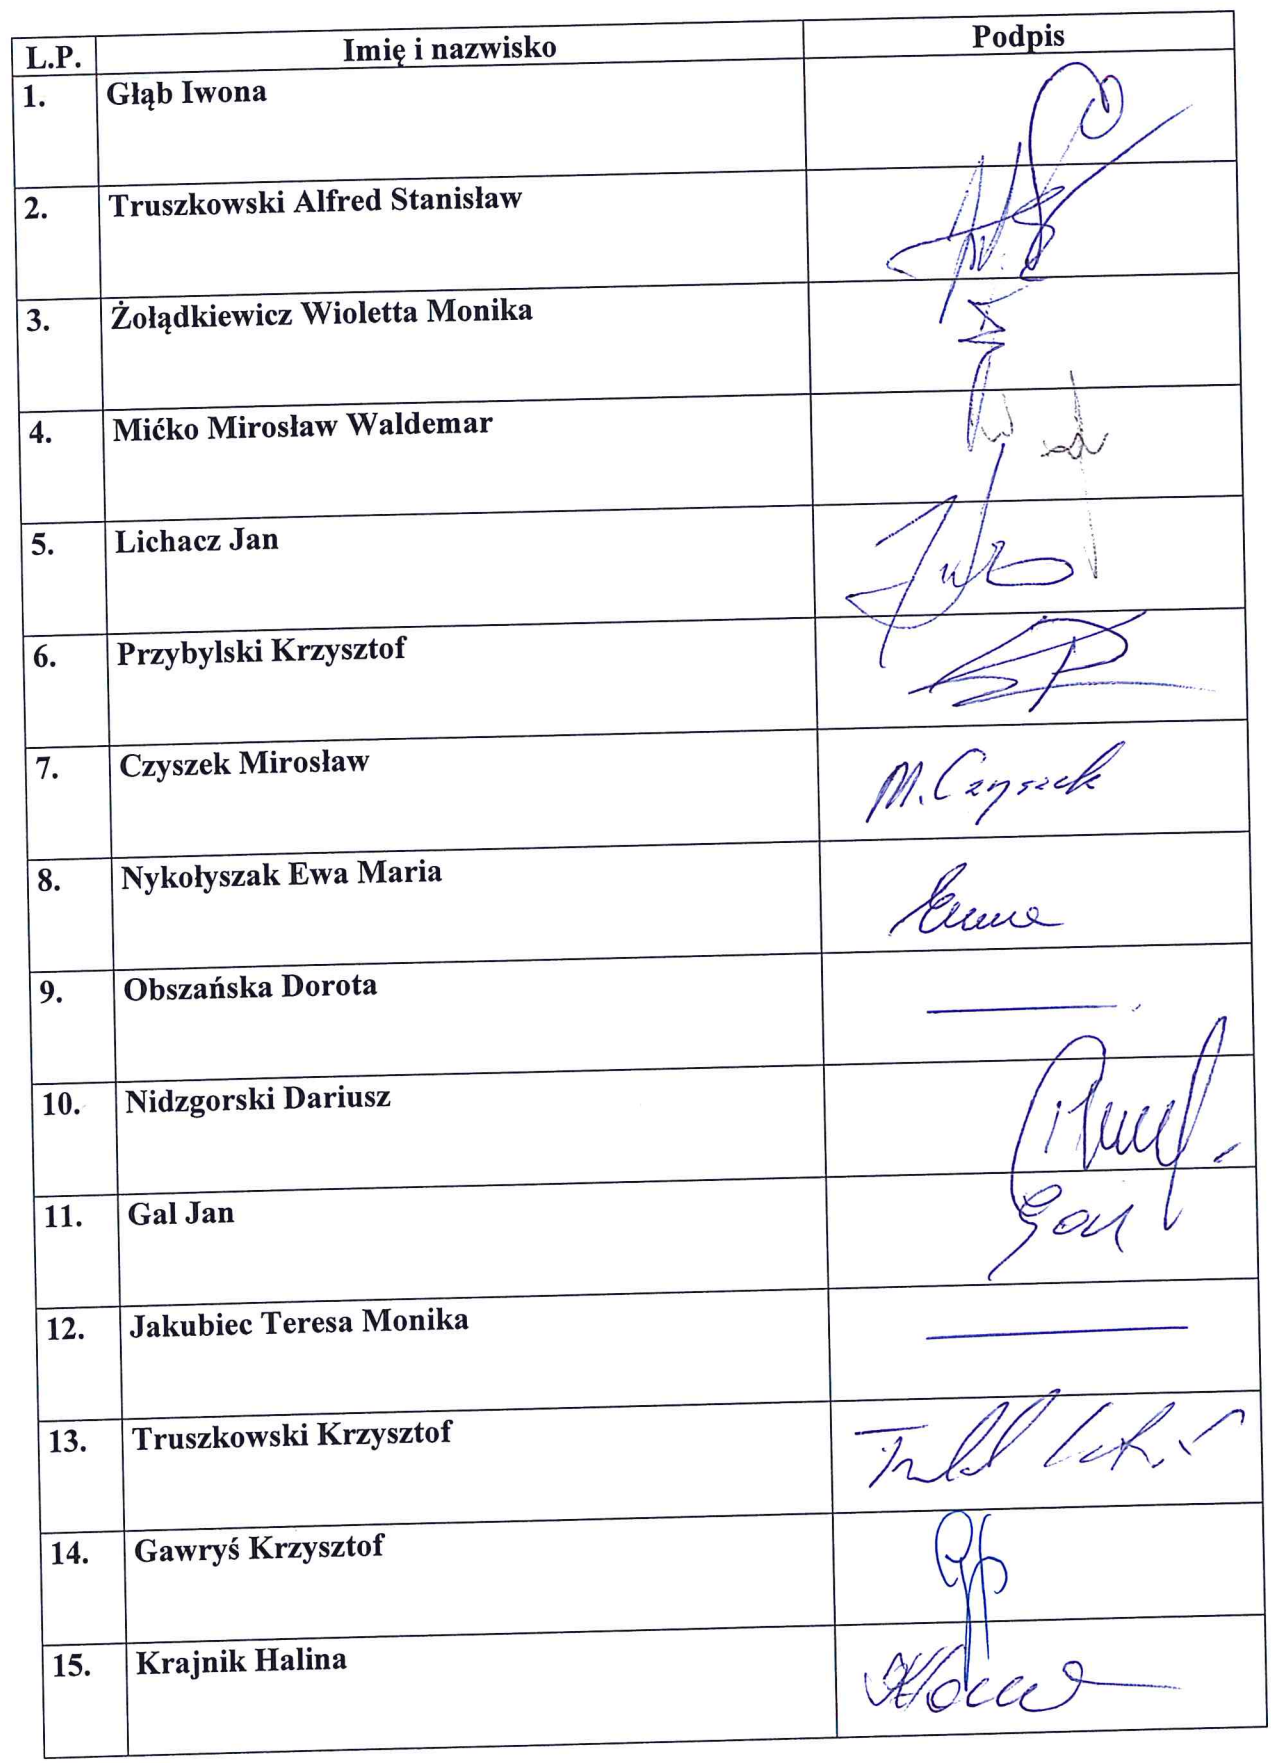 L.P. Imię i nazwisko Podpis
1. Głąb Iwona
2. Truszkowski Alfred Stanisław
3. Żołądkiewicz Wioletta Monika
4. Mićko Mirosław Waldemar
5. Lichacz Jan
6. Przybylski Krzysztof
7. Czyszek Mirosław M. Czyszek
8. Nykołyszak Ewa Maria
9. Obszańska Dorota
10. Nidzgorski Dariusz
11. Gal Jan
12. Jakubiec Teresa Monika
13. Truszkowski Krzysztof
14. Gawryś Krzysztof
15. Krajnik Halina